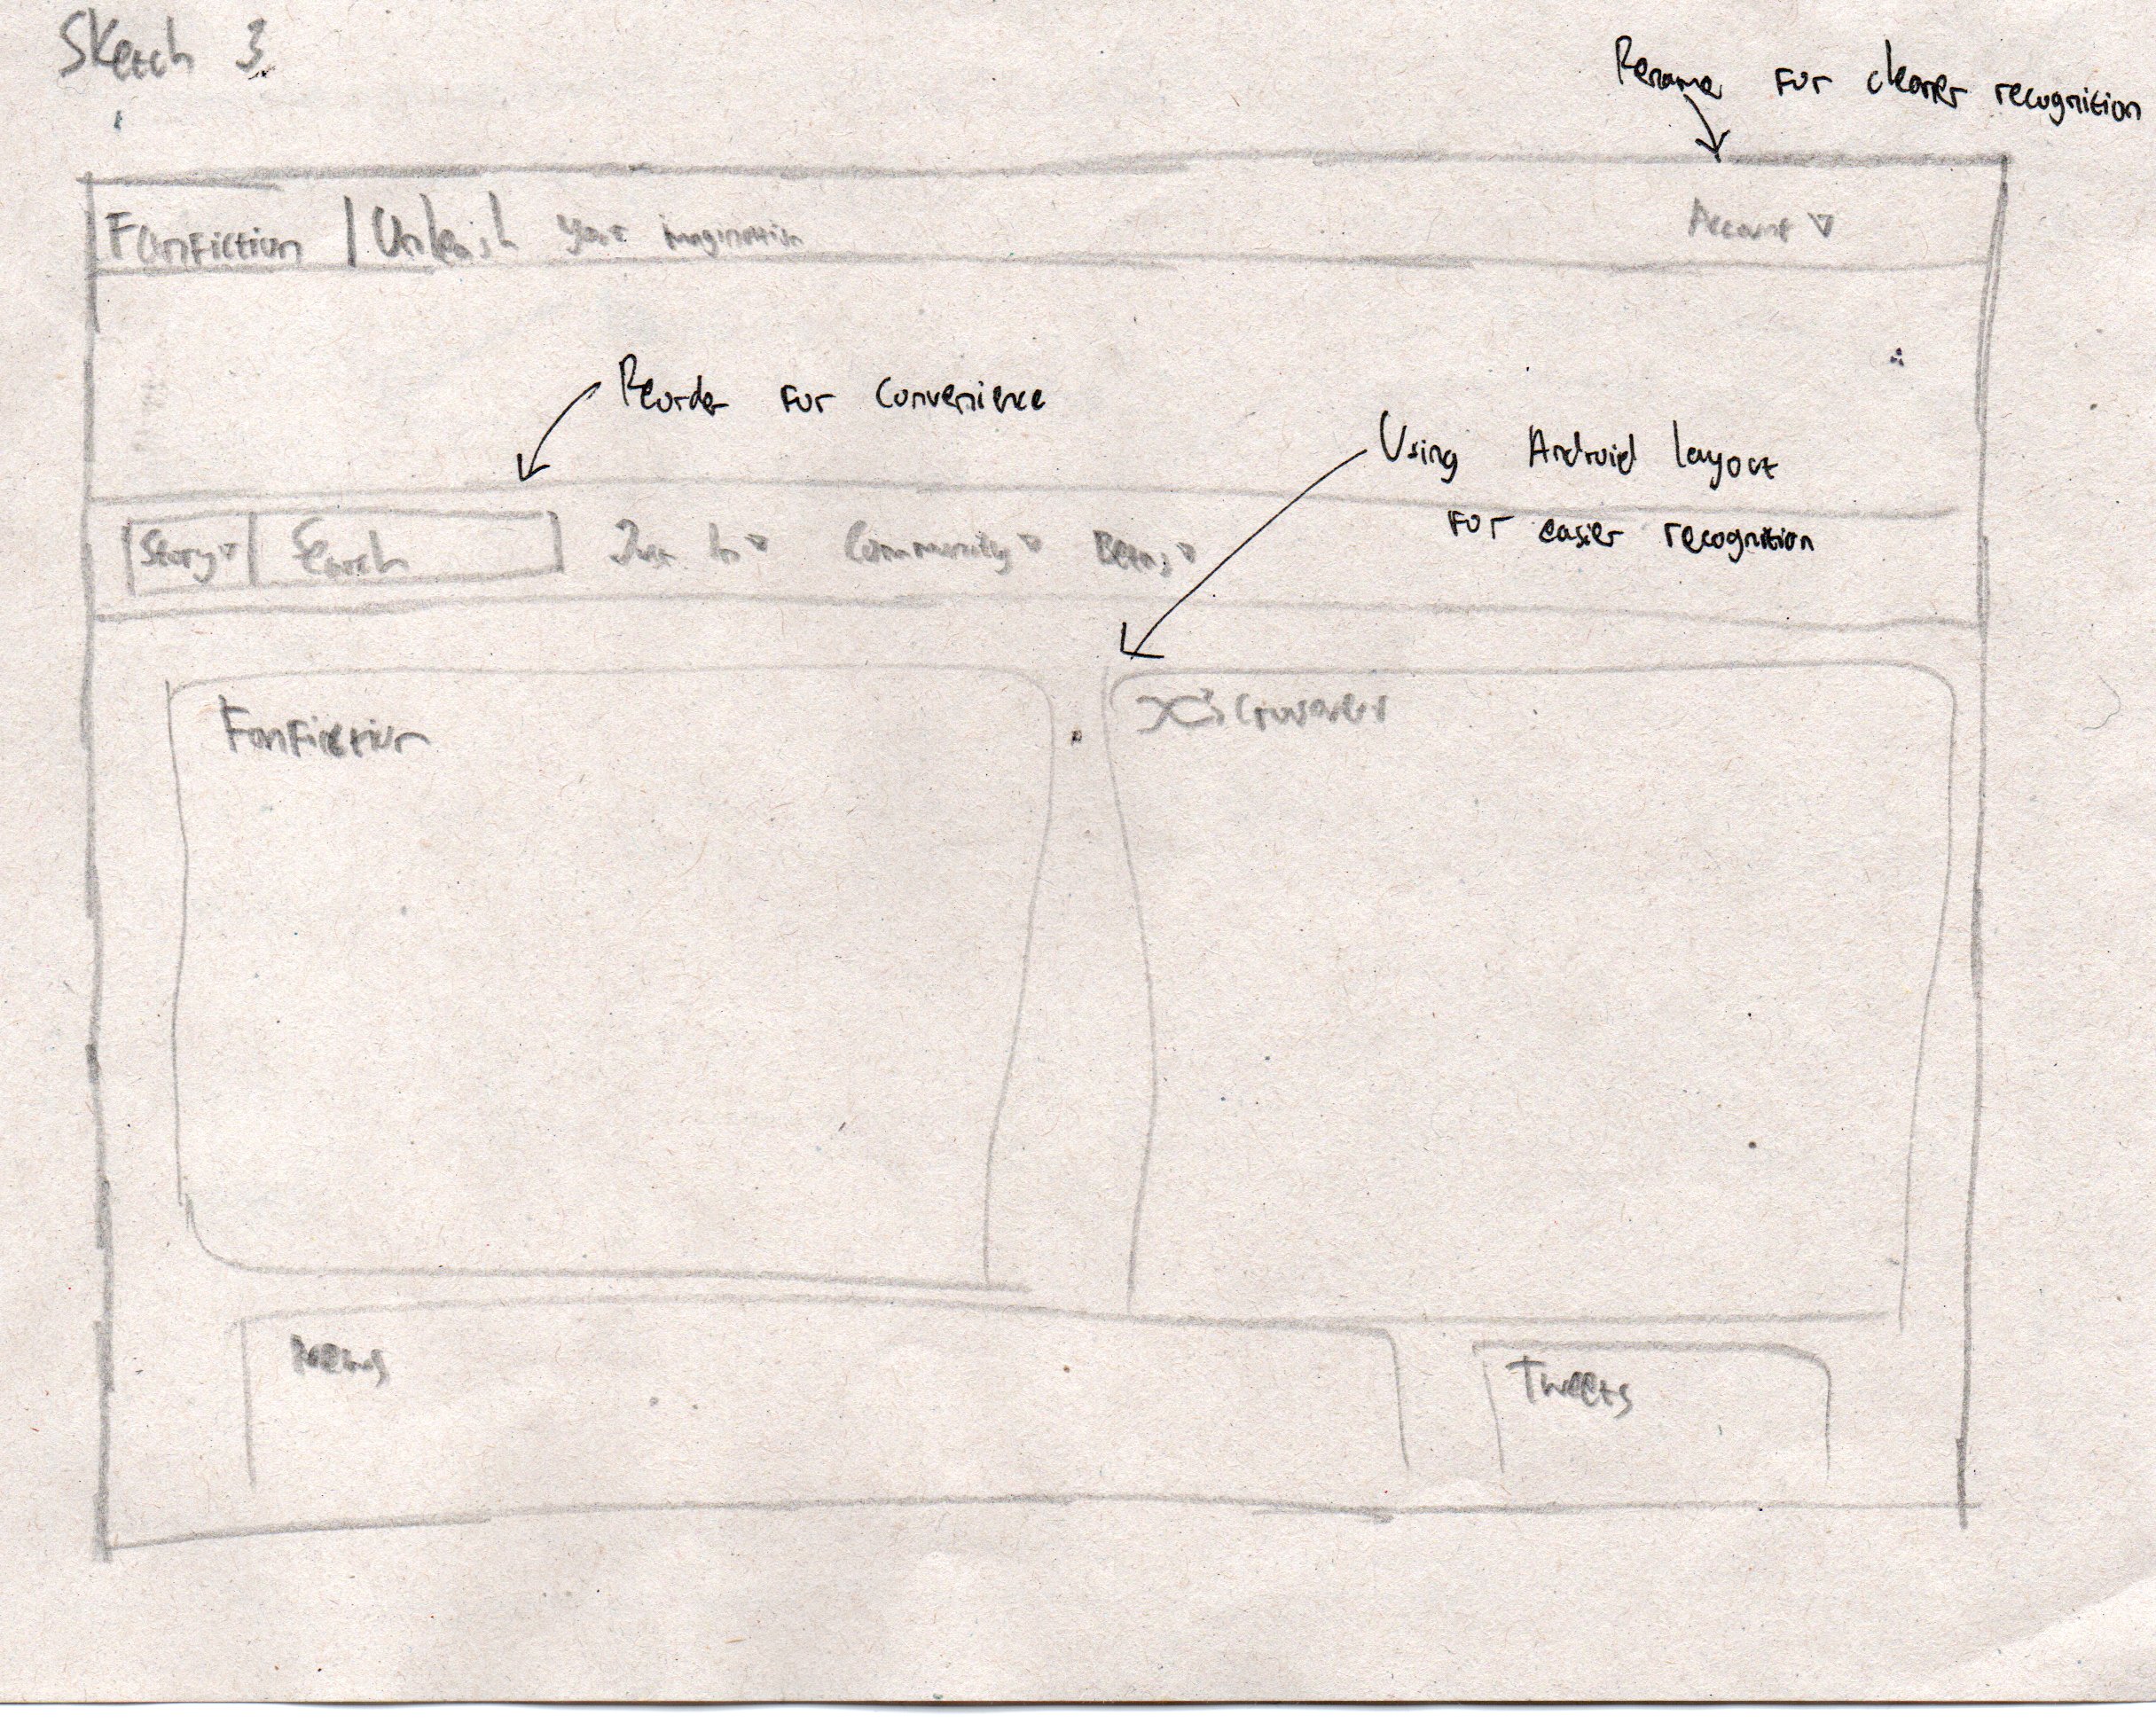 Sketch 3
Rename for clearer recognition
FanFiction | Unleash your imagination
Account
Reorder for convenience
Using Android layout
for easier recognition
Story Search Just In Community Betas
FanFiction
Crossovers
News
Tweets